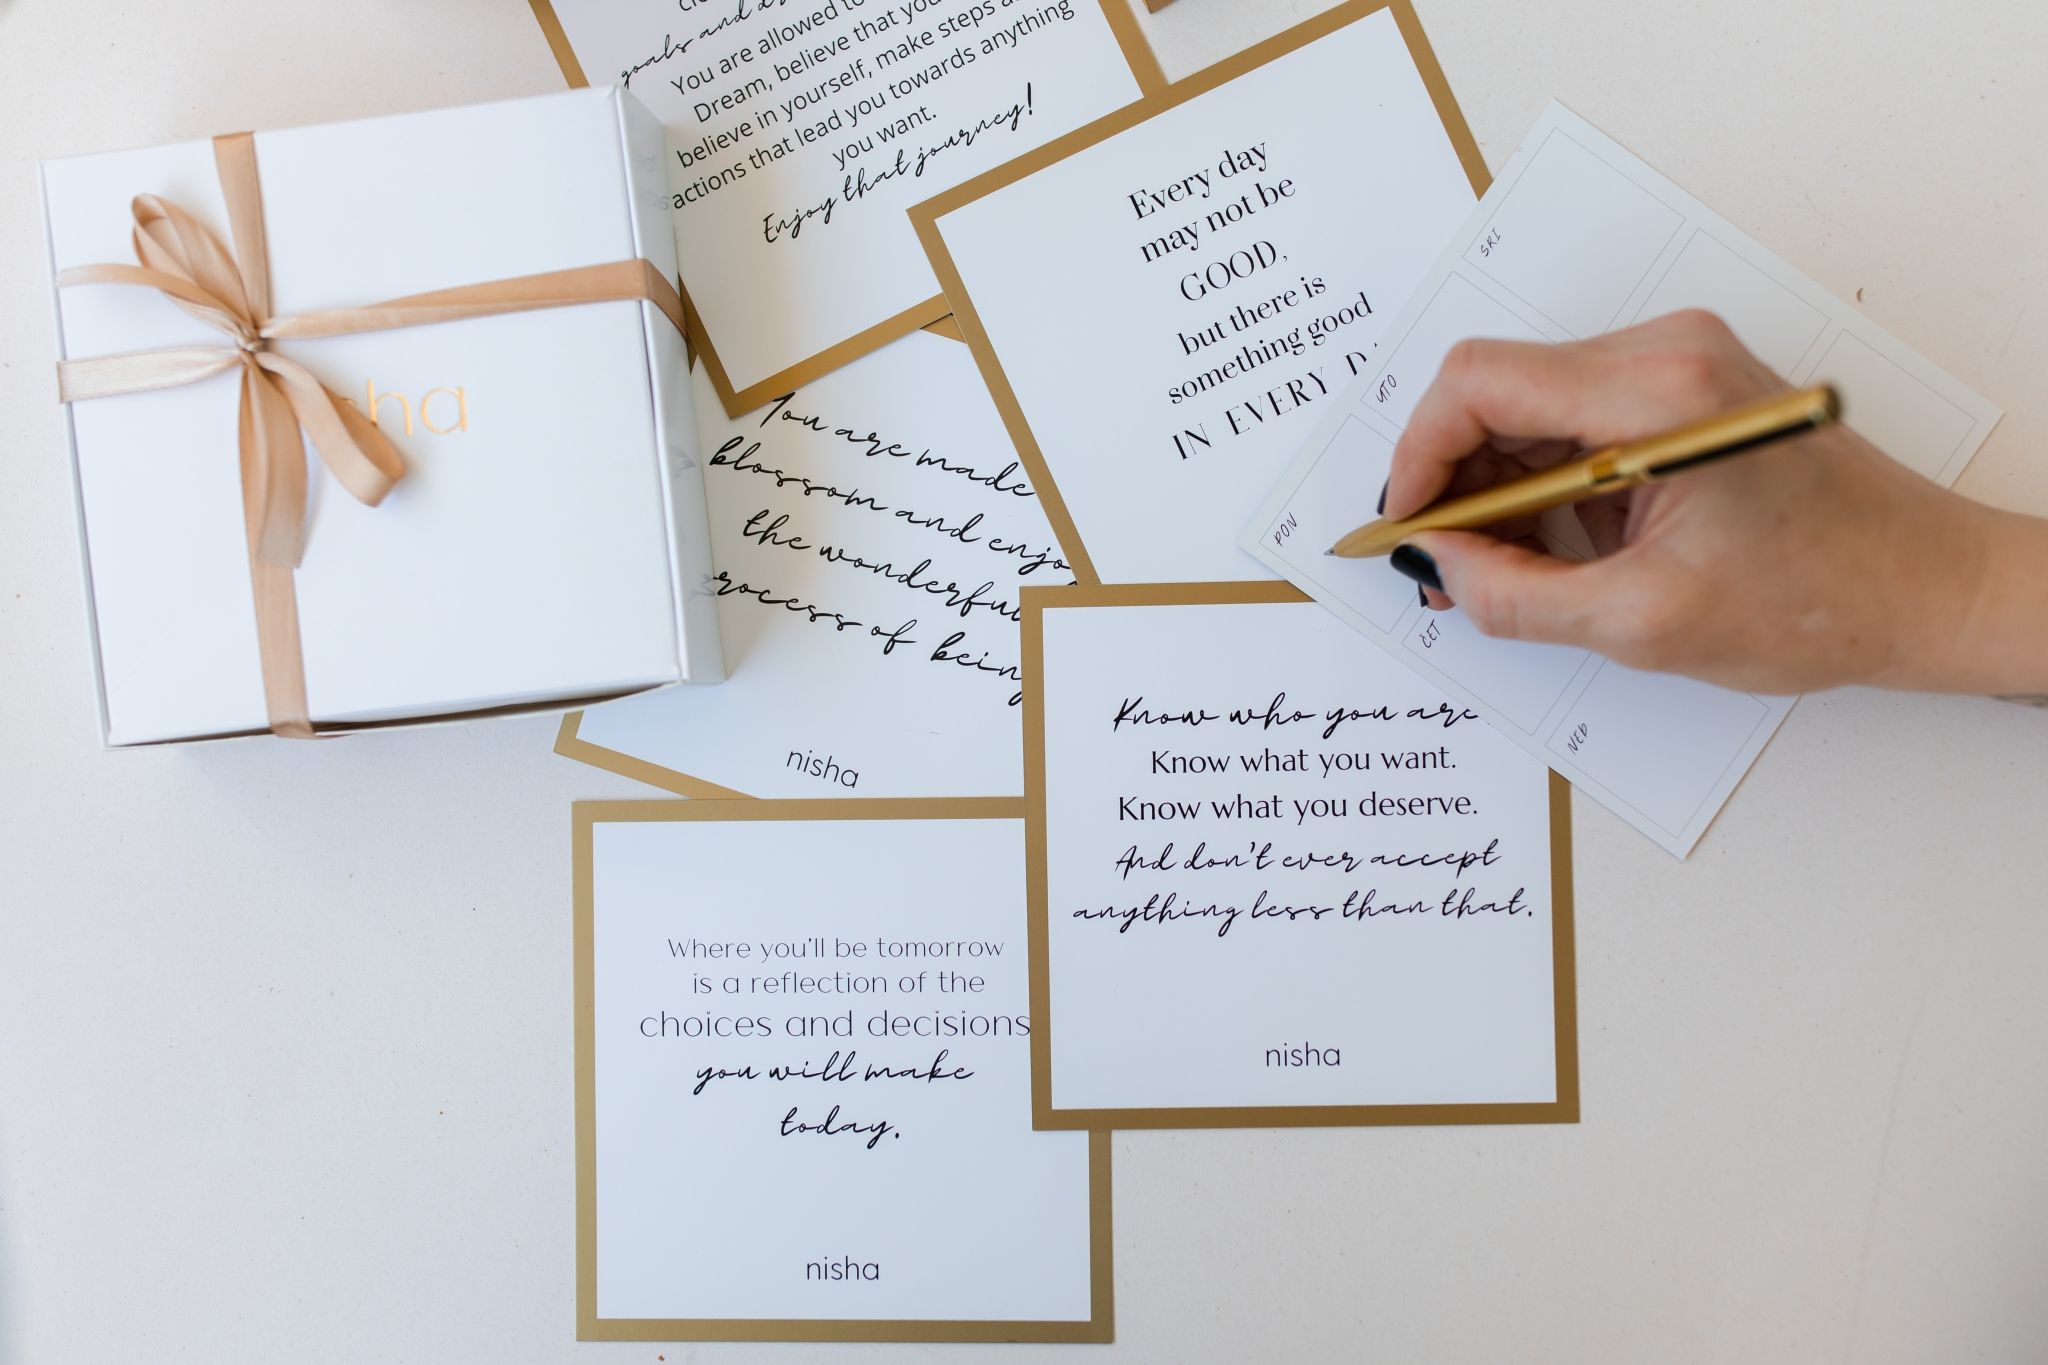 goals and
You are allowed to
Dream, believe that you
believe in yourself, make steps
actions that lead you towards anything
you want.
Enjoy that journey!
Every day
may not be
GOOD,
but there is
something good
IN EVERY
SRI
UTO
PON
ČET
NED
sha
You are made
blossom and enjoy
the wonderful
process of being
nisha
Know who you are.
Know what you want.
Know what you deserve.
And don't ever accept
anything less than that.
nisha
Where you'll be tomorrow
is a reflection of the
choices and decisions
you will make
today.
nisha